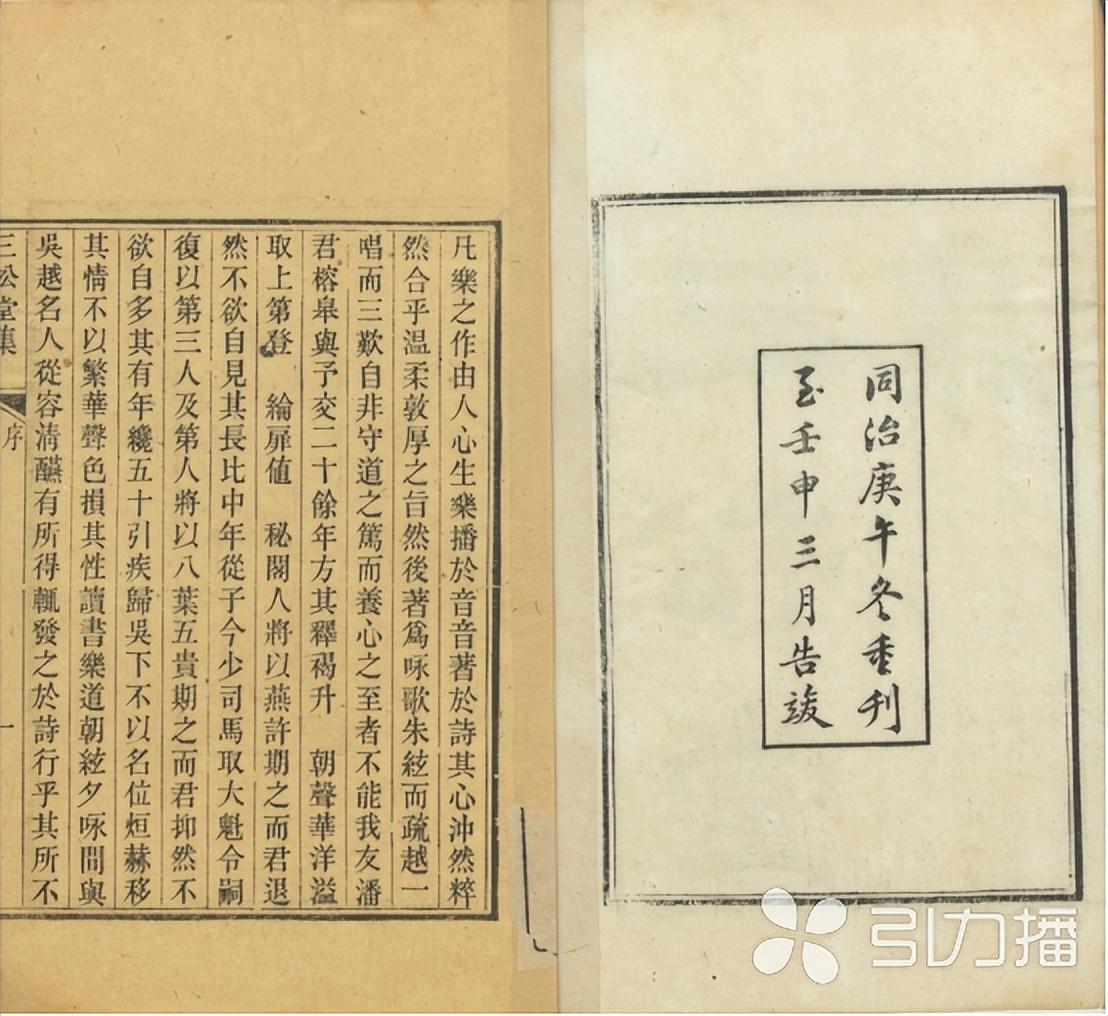 同治庚午冬重刊
至壬申三月告竣
凡樂之作由人心生樂播於音音著於詩其心沖然粹
然合乎温柔敦厚之旨然後著爲咏歌朱絃而疏越一
唱而三歎自非守道之篤而養心之至者不能我友潘
君榕皋與予交二十餘年方其釋褐升　朝聲華洋溢
取上第登　綸扉値　秘閣人將以燕許期之而君退
然不欲自見其長比中年從子今少司馬取大魁令嗣
復以第三人及第人將以八葉五貴期之而君抑然不
欲自多其有年纔五十引疾歸吳下不以名位烜赫移
其情不以繁華聲色損其性讀書樂道朝絃夕咏間與
吳越名人從容清醼有所得輒發之於詩行乎其所不
三松堂集
序
一
引力播